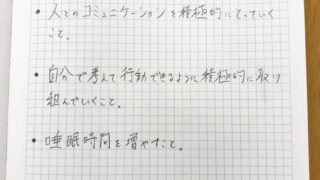 • 人とのコミュニケーションを積極的にとっていく
こと。
• 自分で考えて行動できるように積極的に取り
組んでいくこと。
• 睡眠時間を増やすこと。